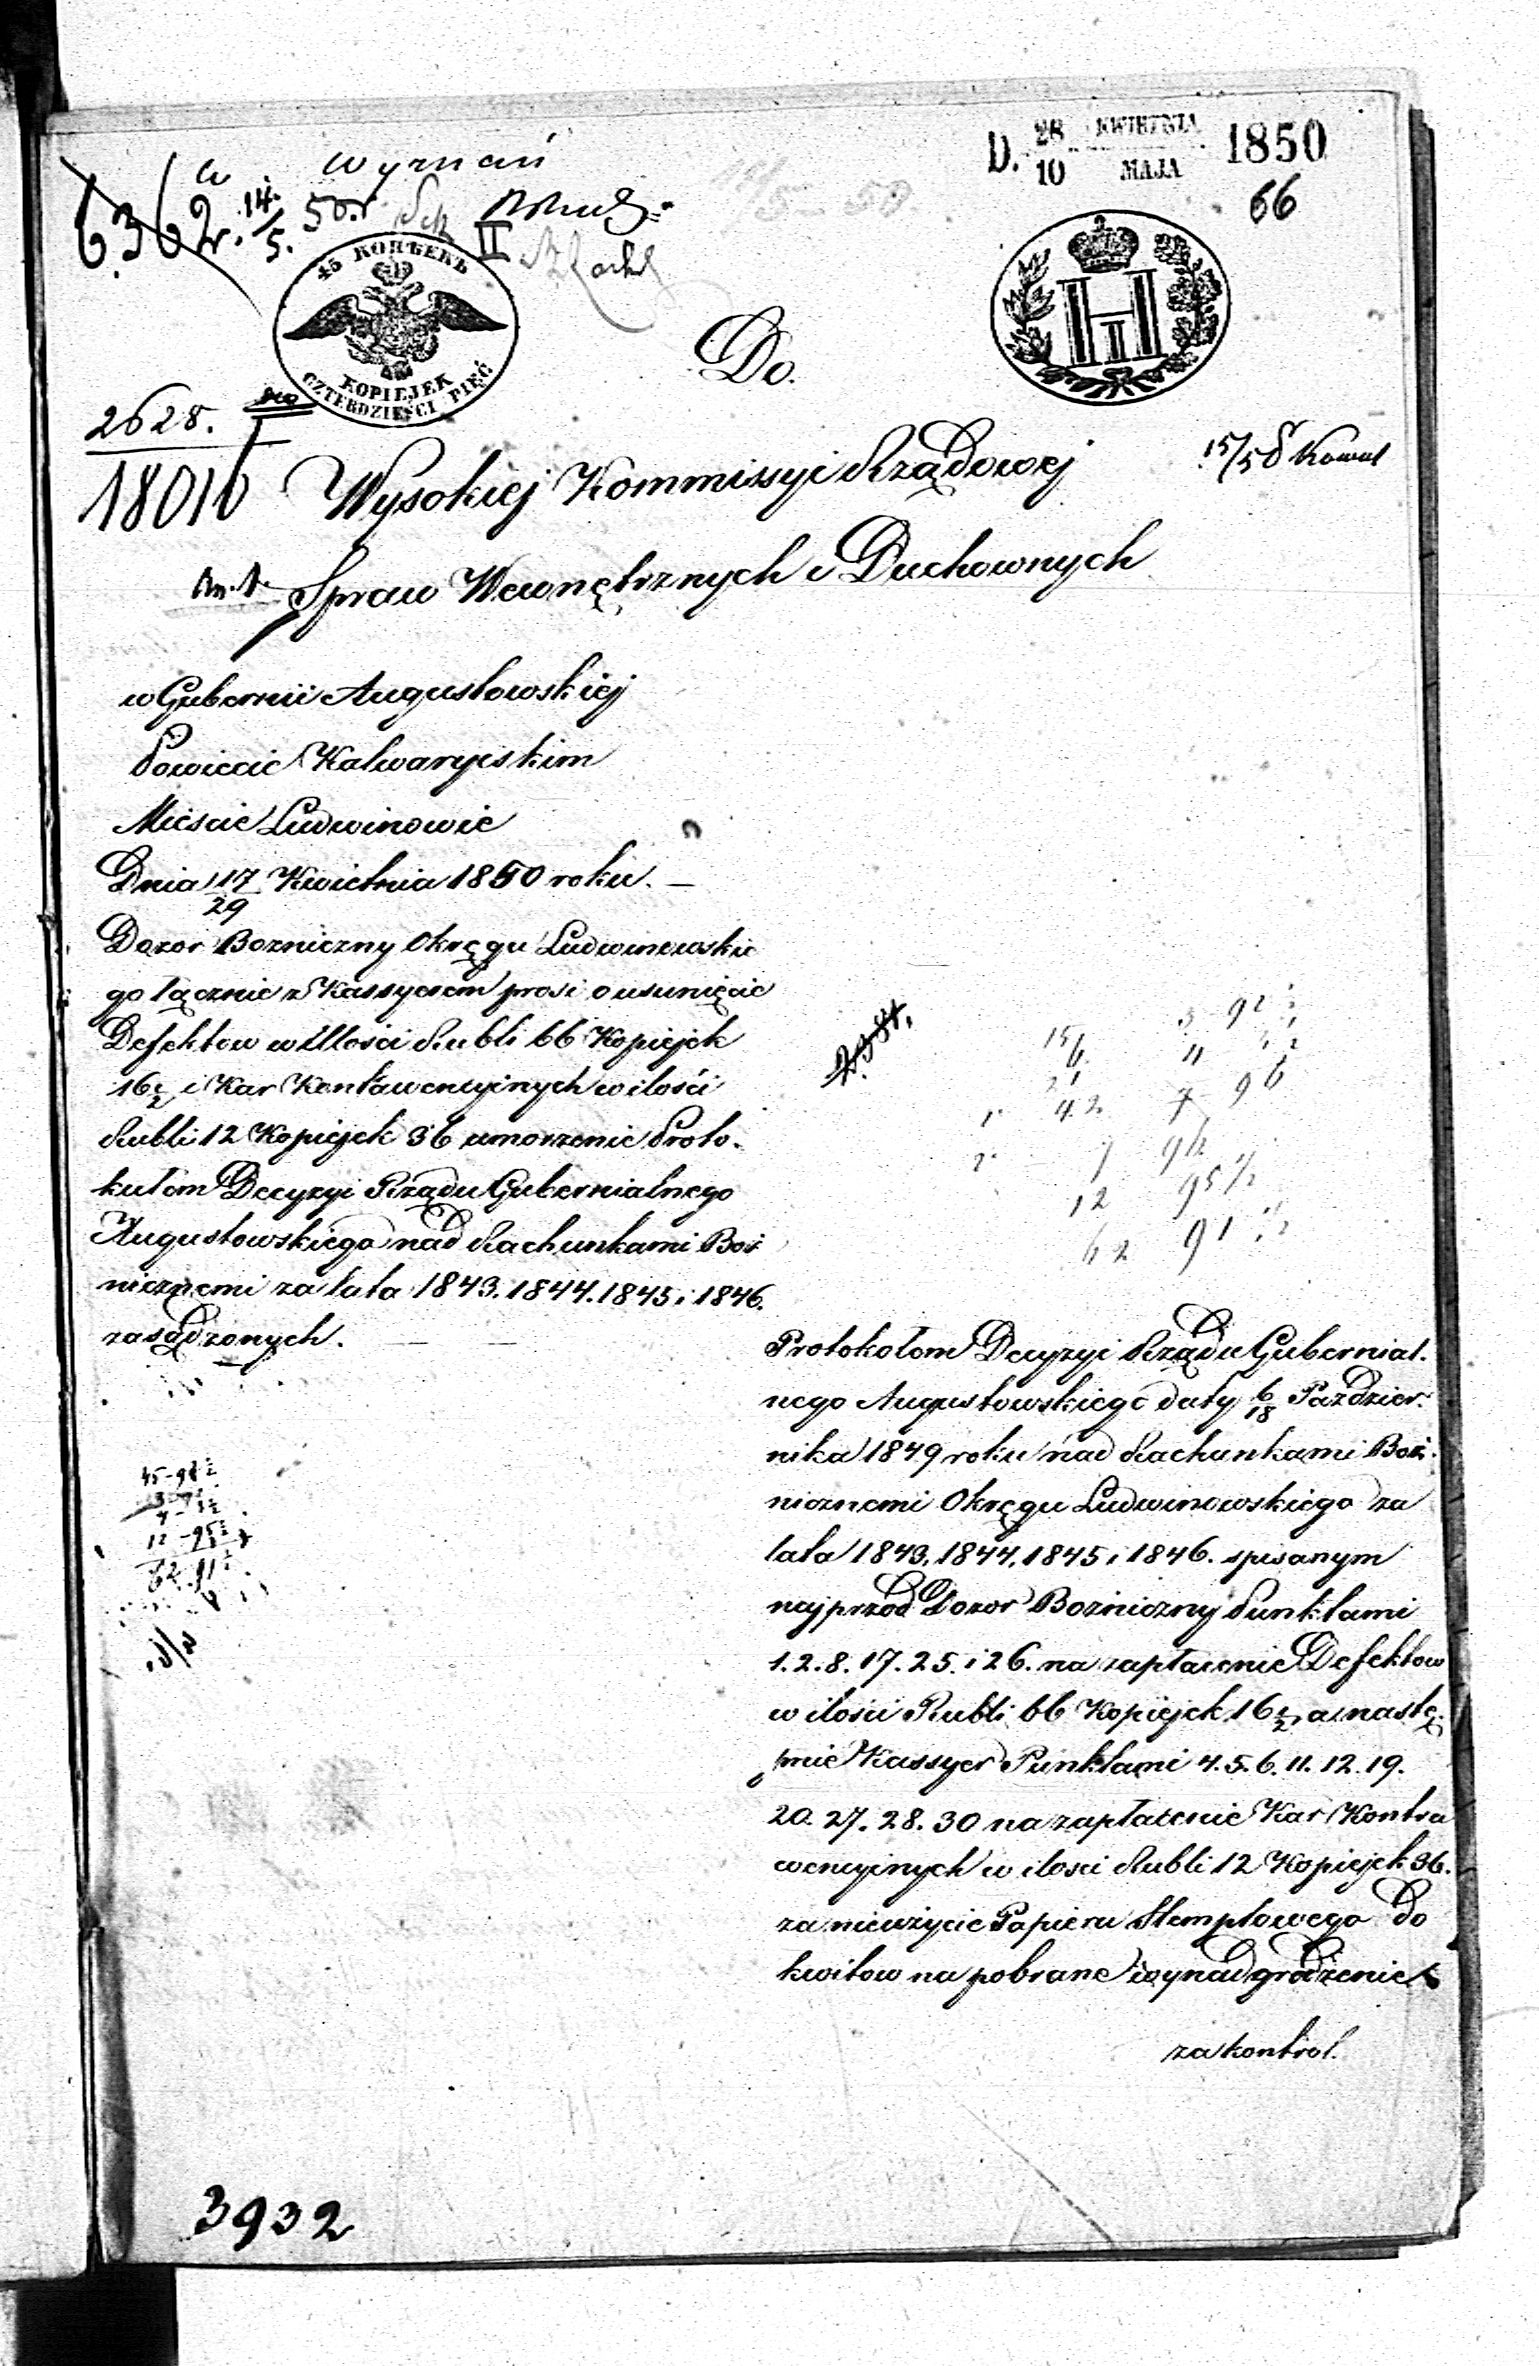 D. 28/10 KWIETNIA/MAJA 1850
66
w Wyznań
6362. 14/5. 50.r
II
45 КОПѢЕКЪ
KOPIEJEK
CZTERDZIEŚCI PIĘĆ
Do.
2628.
18016
15/5 8 Kowal
Wysokiej Kommissyi Rządowej
Spraw Wewnętrznych i Duchownych
w Gubernii Augustowskiej
Powiecie Kalwaryiskim
Mieście Ludwinowie
Dnia 17/29 Kwietnia 1850 roku. —
Dozor Bozniczny Okręgu Ludwinowskie
go łącznie z Kassyerem prosi o usunięcie
Defektow w Ilości Rubli 66 Kopiejek
16 1/2 i Kar Kontawencyinych w ilości
Rubli 12 Kopiejek 36 umorzenie Proto-
kułem Decyzyi Rządu Gubernialnego
Augustowskiego nad Rachunkami Boż
nicznemi za lata 1843. 1844. 1845 i 1846.
zasądzonych. —
3 92 1/2
15/6 11
42 7 96
12 95 1/2
62 91 1/2
45-98 1/2
12-95 1/2
62-91 1/2
Protokołem Decyzyi Rządu Gubernial-
nego Augustowskiego daty 6/18 Pazdzier-
nika 1849 roku nad Rachunkami Boż-
nicznemi Okręgu Ludwinowskiego za
lata 1843, 1844, 1845 i 1846. spisanym
najprzod Dozor Bozniczny Punktami
1. 2. 8. 17. 25. i 26. na zapłacenie Defektow
w ilości Rubli 66 Kopiejek 16 1/2 a nastę-
pnie Kassyer Punktami 4. 5. 6. 11. 12. 19.
20. 27. 28. 30 na zapłacenie Kar Kontra
wencyinych w ilosci Rubli 12 Kopiejek 36.
za nieużycie Papieru Stemplowego do
kwitow na pobrane wynadgrodzenie
za kontrol.
3932